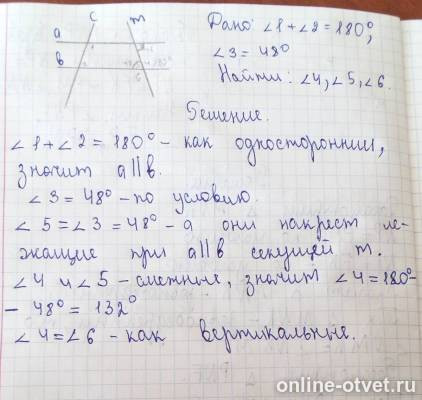 c m
a
b
Дано: ∠1+∠2=180°,
∠3=48°
Найти: ∠4,∠5,∠6.
Решение.
∠1+∠2=180°- как односторонnии,
значит a||b.
∠3=48°-по условию.
∠5=∠3=48°-а они накрест ле-
жащие при a||b секущей m.
∠4 и ∠5-смежные, значит ∠4=180°-
-48°=132°
∠4=∠6 - как вертикальные.
online-otvet.ru